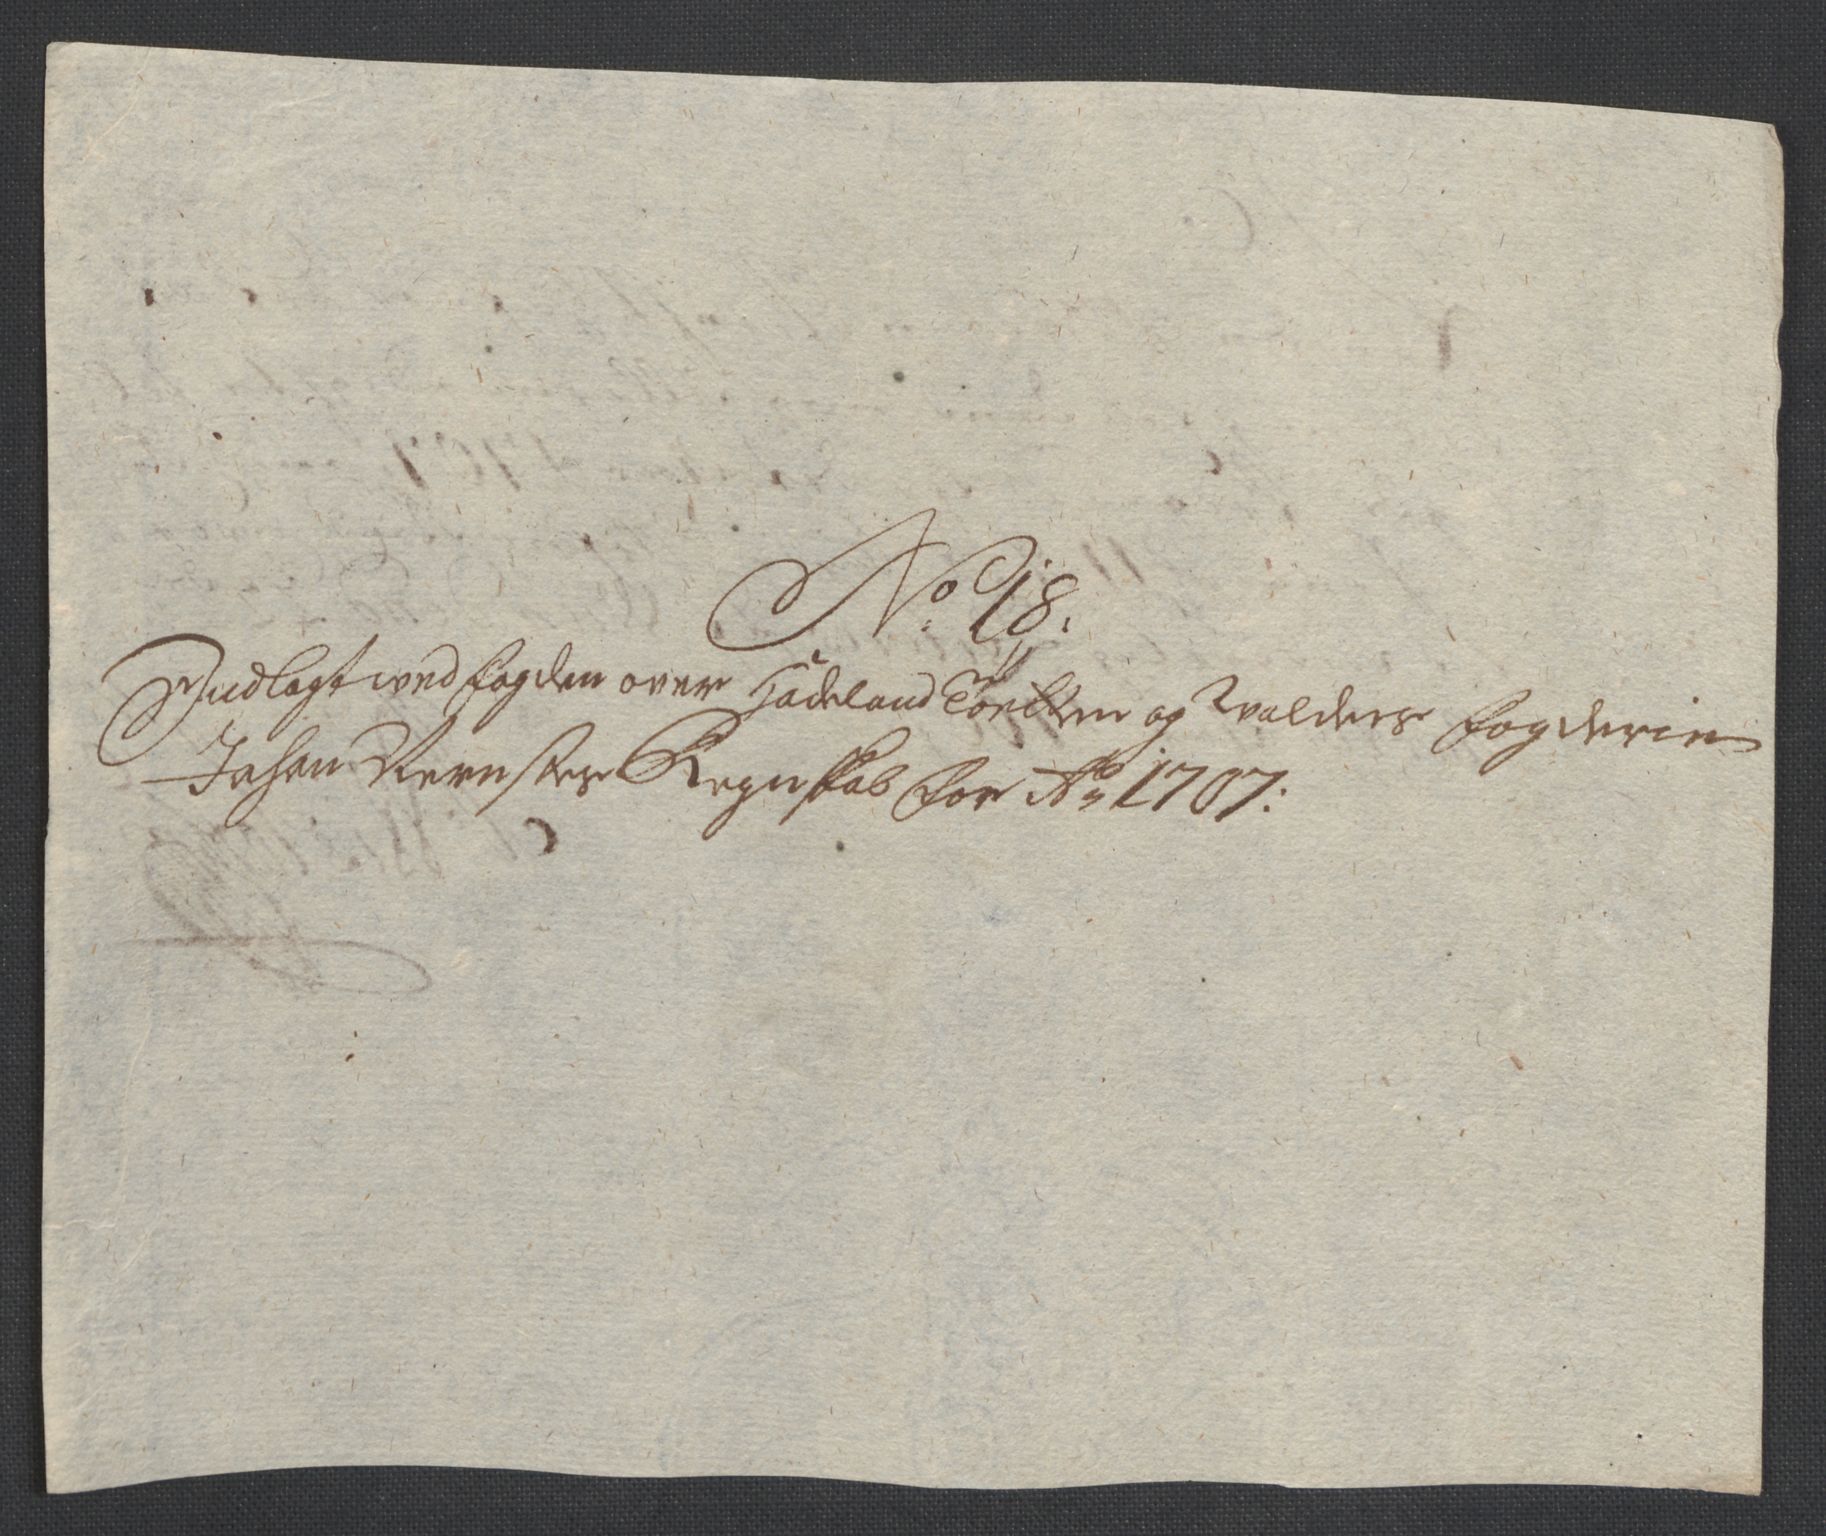 No. 18.
Indlagt wed fogden over Hadeland Totten og Walders fogderie
Johan Kernstes Regnskab for Ao 1707: